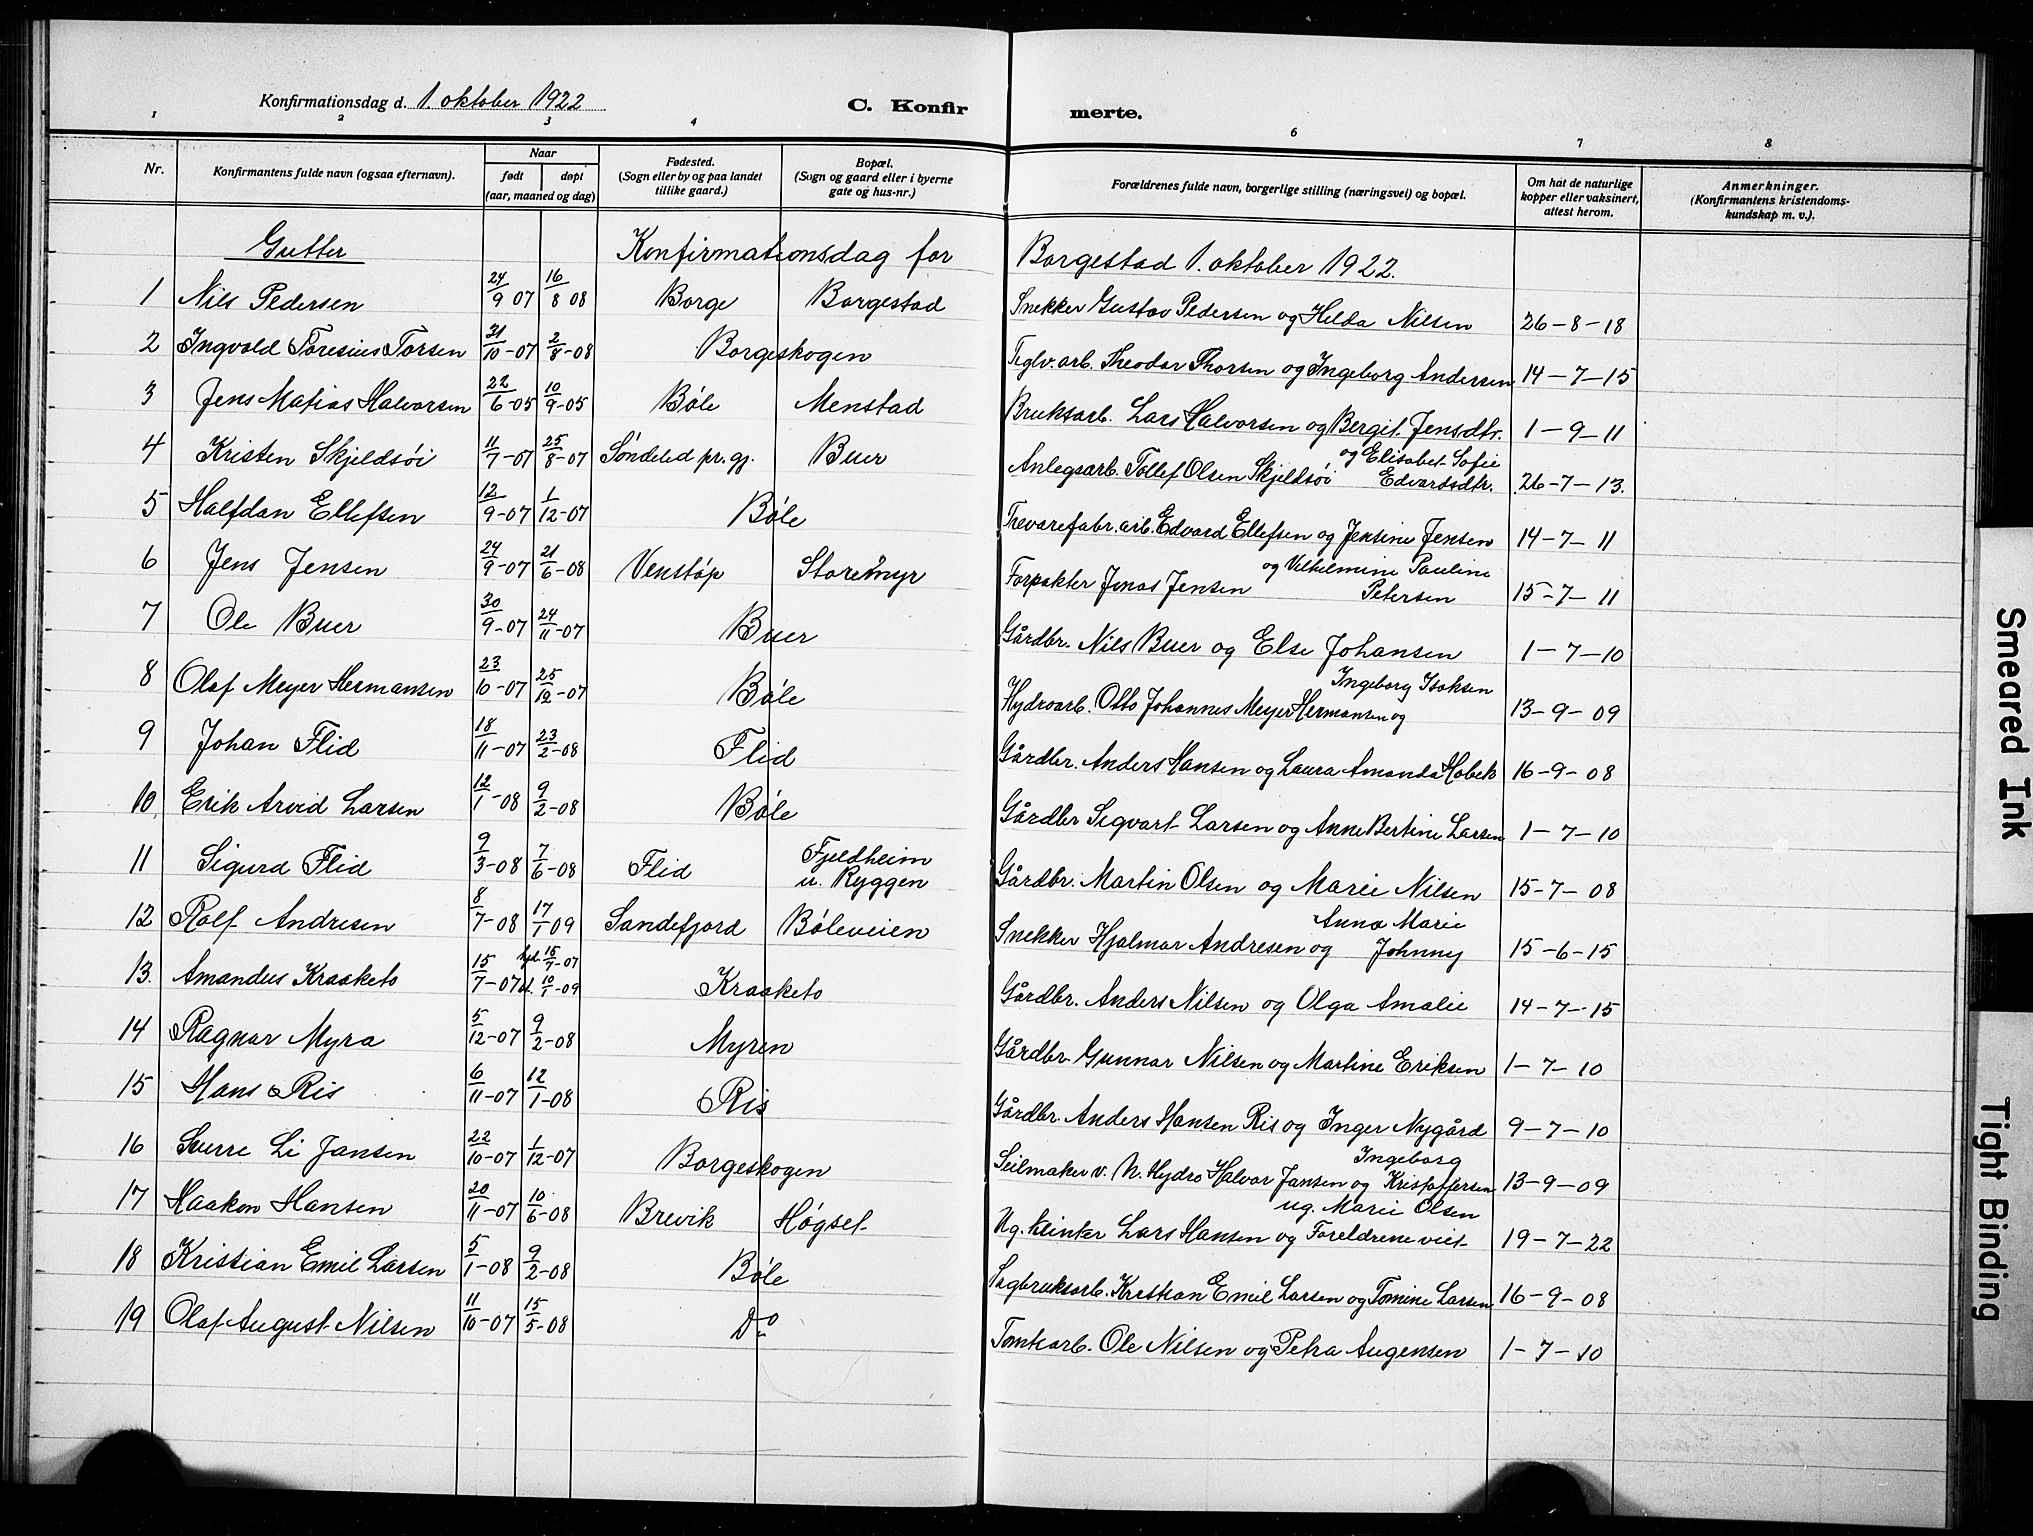 Konfirmationsdag d. 1. oktober 1922 C. Konfir merte.
1 2 3 4 6 7 8
Nr. Konfirmantens fulde navn (ogsaa efternavn). Naar født døpt (aar, maaned og dag) Fødested. (Sogn eller by og paa landet tillike gaard.) Bopæl. (Sogn og gaard eller i byerne gate og hus-nr.) Forældrenes fulde navn, borgerlige stilling (næringsvei) og bopæl. Om hat de naturlige kopper eller vaksinert, attest herom. Anmerkninger. (Konfirmantens kristendoms-kundskap m. v.).
Gutter Konfirmationsdag for Borgestad 1. oktober 1922.
1 Nils Pedersen 24/9 07 16/8 08 Borge Borgestad Snekker Gustav Pedersen og Hilda Nilsen 26-8-18
2 Ingvald Toresius Torsen 31/10-07 2/8-08 Borgeskogen Teglv. arb. Theodor Thorsen og Ingeborg Andersen 14-7-15
3 Jens Matias Halvorsen 22/6-05 10/9-05 Bøle Menstad Bruksarb. Lars Halvorsen og Bergit Jensdtr. 1-9-11
4 Kristen Skjeldsøi 11/7-07 25/8-07 Søndeled pr. gj. Buer Anlegsarb. Tollef Olsen Skjeldsøi og Elisabet Sofie Edvardsdtr. 26-7-13.
5 Halfdan Ellefsen 12/9-07 1/12-07 Bøle Trevarefabr. arb. Edvard Ellefsen og Jensine Jensen 14-7-11
6 Jens Jensen 24/9-07 21/6-08 Venstøp Storemyr Forpakter Jonas Jensen og Vilhelmine Pauline Petersen 15-7-11
7 Ole Buer 30/9-07 24/11-07 Buer Gårdbr. Nils Buer og Else Johansen 1-7-10
8 Olaf Meyer Hermansen 23/10-07 25/12-07 Bøle Hydroarb. Otto Johannes Meyer Hermansen og Ingeborg Isaksen 13-9-09
9 Johan Flid 18/11-07 23/2-08 Flid Gårdbr. Anders Hansen og Laura Amanda Hobek 16-9-08
10. Erik Arvid Larsen 12/1-08 9/2-08 Bøle Gårdbr Segvart Larsen og Anne Bertine Larsen 1-7-10
11 Sigurd Flid 9/3-08 7/6-08 Flid Fjeldheim u. Ryggen Gårdbr. Martin Olsen og Marie Nilsen 15-7-08
12 Rolf Andresen 8/7-08 17/1-09 Sandefjord Bøleveien Snekker Hjalmar Andresen og Anna Marie Johnny 15-6-15
13. Amandus Kraaketo 15/7-07 hjd. 15/7-07 st. 10/1-09 Kraaketo Gårdbr. Anders Nilsen og Olga Amalie 14-7-15
14 Ragnar Myra 5/12-07 9/2-08 Myren Gårdbr. Gunnar Nilsen og Martine Eriksen 1-7-10
15 Hans Ris 6/11-07 12/1-08 Ris Gårdbr. Anders Hansen Ris og Inger Nygård 9-7-10
16 Sverre Li Jansen 22/10-07 1/12-07 Borgeskogen Seilmaker v. N. Hydro Halvor Jansen og Ingeborg Kristoffersen 13-9-09
17 Haakon Hansen 20/11-07 10/6-08 Brevik Høgset Ug. klinker Lars Hansen og ug. Marie Olsen Foreldrene viet 19-7-22
18 Kristian Emil Larsen 5/1-08 9/2-08 Bøle Sagbruksarb. Kristian Emil Larsen og Tomine Larsen 16-9-08
19 Olaf August Nilsen 11/10-07 15/5-08 Do Tomtearb. Ole Nilsen og Petra Augensen 1-7-10
Smeared Ink
Tight Binding